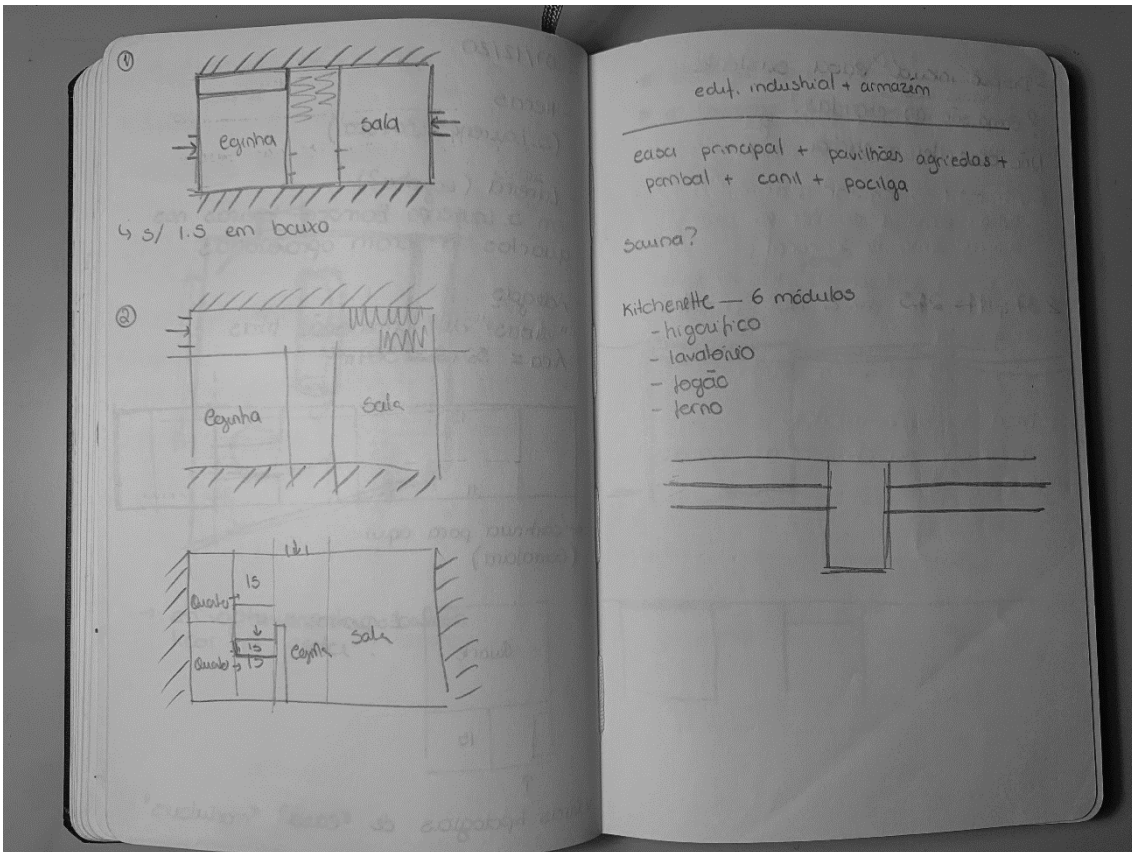 1
Cozinha
Sala
↳ s/ I.S em baixo
2
Cozinha
Sala
IS
Quarto
IS
Quarto
IS
Cozinha
Sala
edif. industrial + armazém
casa principal + pavilhões agrícolas +
pombal + canil + pocilga
sauna?
Kitchenette — 6 módulos
- frigorífico
- lavatório
- fogão
- forno